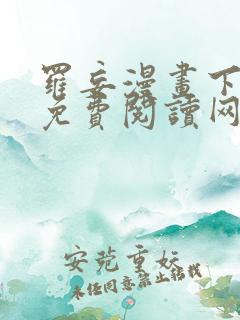 羅妄漫畫下
免費閱讀网
安苑重妧
未经同意禁止转载